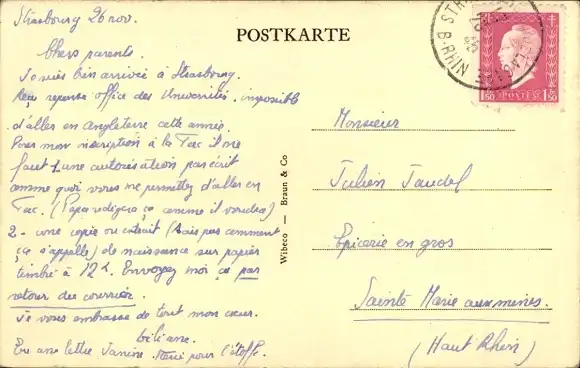 Strasbourg 26 nov.
Chers parents.
Je suis bien arrivée à Strasbourg.
Reçu reponse office des Universités, impossible
d'aller en Angleterre cette année.
Pour mon inscription à la Fac il me
faut 1 une autorisation par écrit
comme quoi vous me permettez d'aller en
Fac. (Papa redigera ça comme il voudra)
2 - une copie ou extrait (sais pas comment
ça s'appelle) de naissance sur papier
timbré à 12f. Envoyez moi ça par
retour du courrier.
Je vous embrasse de tout mon cœur.
Liliane.
Eu une lettre Janine. Merci pour l'étoffe.
POSTKARTE
Wibeco — Braun & Co
STRASBOURG
B-RHIN
1f50 POSTES 1f50
Monsieur
Julien
Epicerie en gros
Sainte Marie aux mines.
(Haut Rhin)